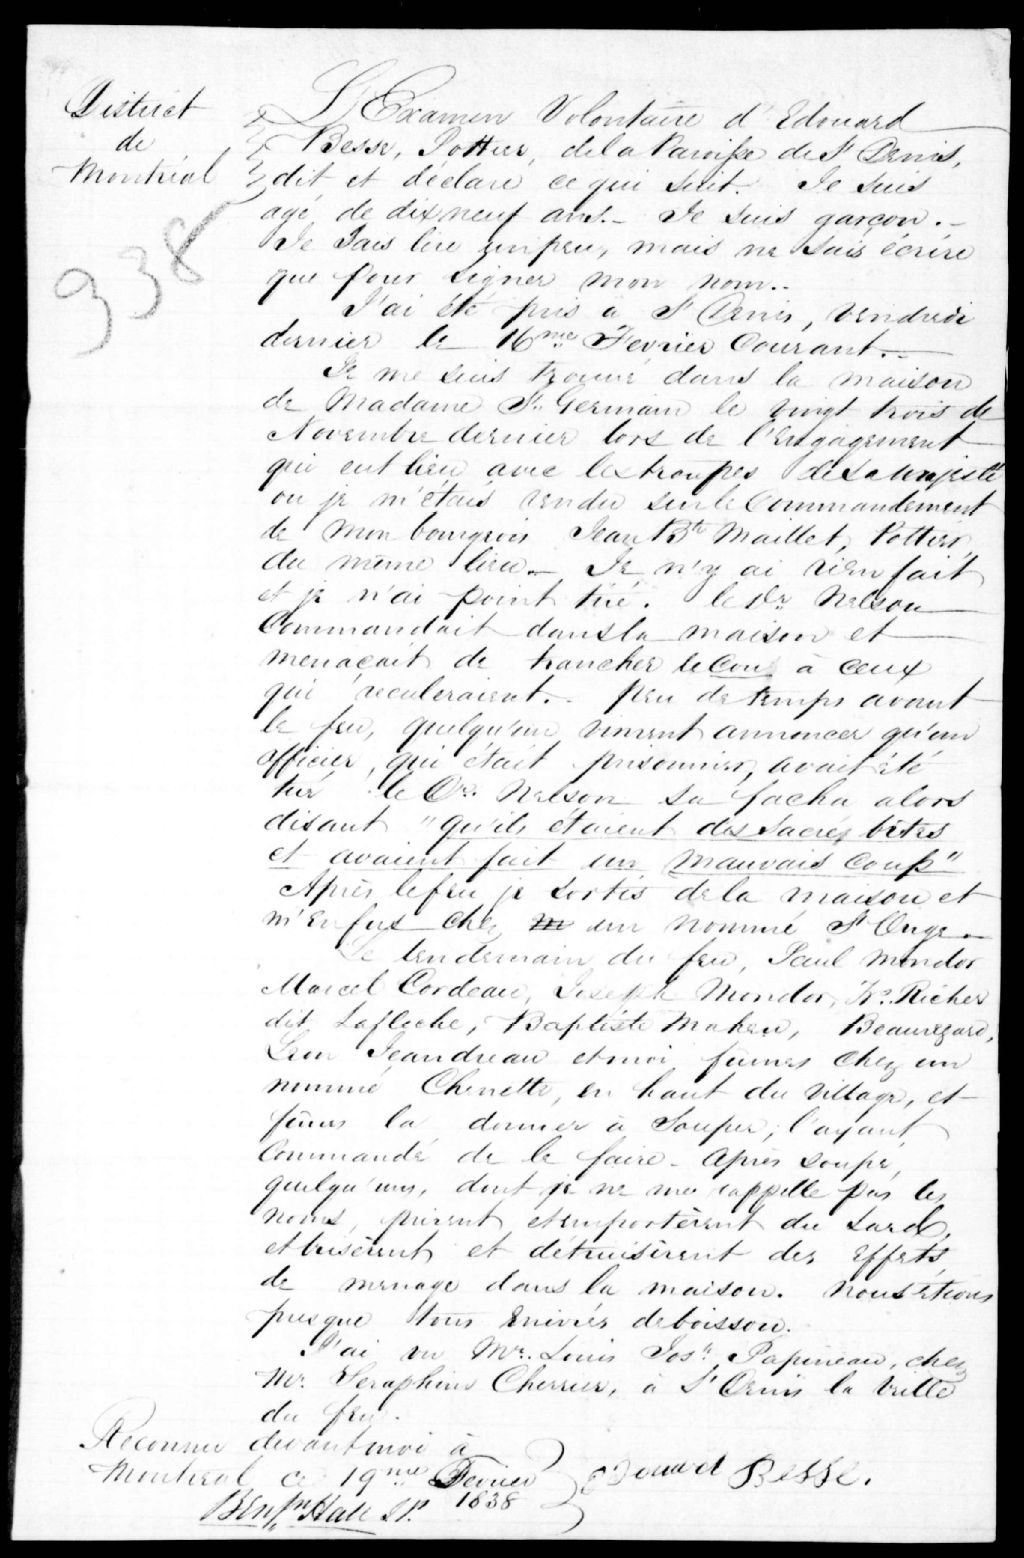 District
de
Montréal
938
L'Examen Volontaire d'Edouard
Besse, Pottier, dela Paroisse de St Denis,
dit et déclare ce qui suit. Je suis
agé de dixneuf ans.- Je suis garçon.-
Je Sais lire unpeu, mais ne Sais écrire
que pour signer mon nom..
J'ai été pris à St Denis, Vendredi
dernier le 16me Fevrier Courant.-
Je me suis trouvé dans la maison
de Madame St. Germain le vingt trois de
Novembre dernier lors de l'Engagement
qui eut lieu avec les troupes de Sa Majesté
ou je m'étais rendu sur le Commandement
de mon bourgeois Jean Bte Maillet, Pottier,
du même lieu.- Je n'y ai rien fait
et je n'ai point tiré. le Dr. Nelson
Commandait dans la maison et
menaçait de trancher le Cou à ceux
qui reculeraient.. peu de temps avant
le feu, quelqu'un vinrent annoncer qu'un
officier, qui était prisonnier, avait été
tué le Dr. Nelson sa facha alors
disant "qu'ils étaient des Sacrés bêtes
et avaient fait un mauvais Coup"
Après le feu je sortis dela maison et
m'en fus chez un nommé St Onge.-
Le lendemain du feu, Paul Mondor
Marcel Cordeau, Joseph Mondor, Frs. Richer
dit Lafleche, Baptiste Maheu, Beauregard,
Léon Jeandreau et moi fumes chez un
nommé Chenette, en haut du Village, et
fûmes la donner à Souper; l'ayant
Commandé de le faire. Après soupé,
quelqu'uns, dont je ne me rappelle pas les
noms, prirent, et emportèrent du Lard,
et brisèrent et détruisirent des Effets
de menage dans la maison. Nous étions
presque tous Enivrés de boisson.
J'ai vu Mr. Louis Josh. Papineau, chez
Mr. Seraphin Cherrier, à St Denis la Veille
du feu.
Reconnu devant moi à
Montreal ce 19me Fevrier
1838
Benjn Hall J.P.
Edouard Besse.